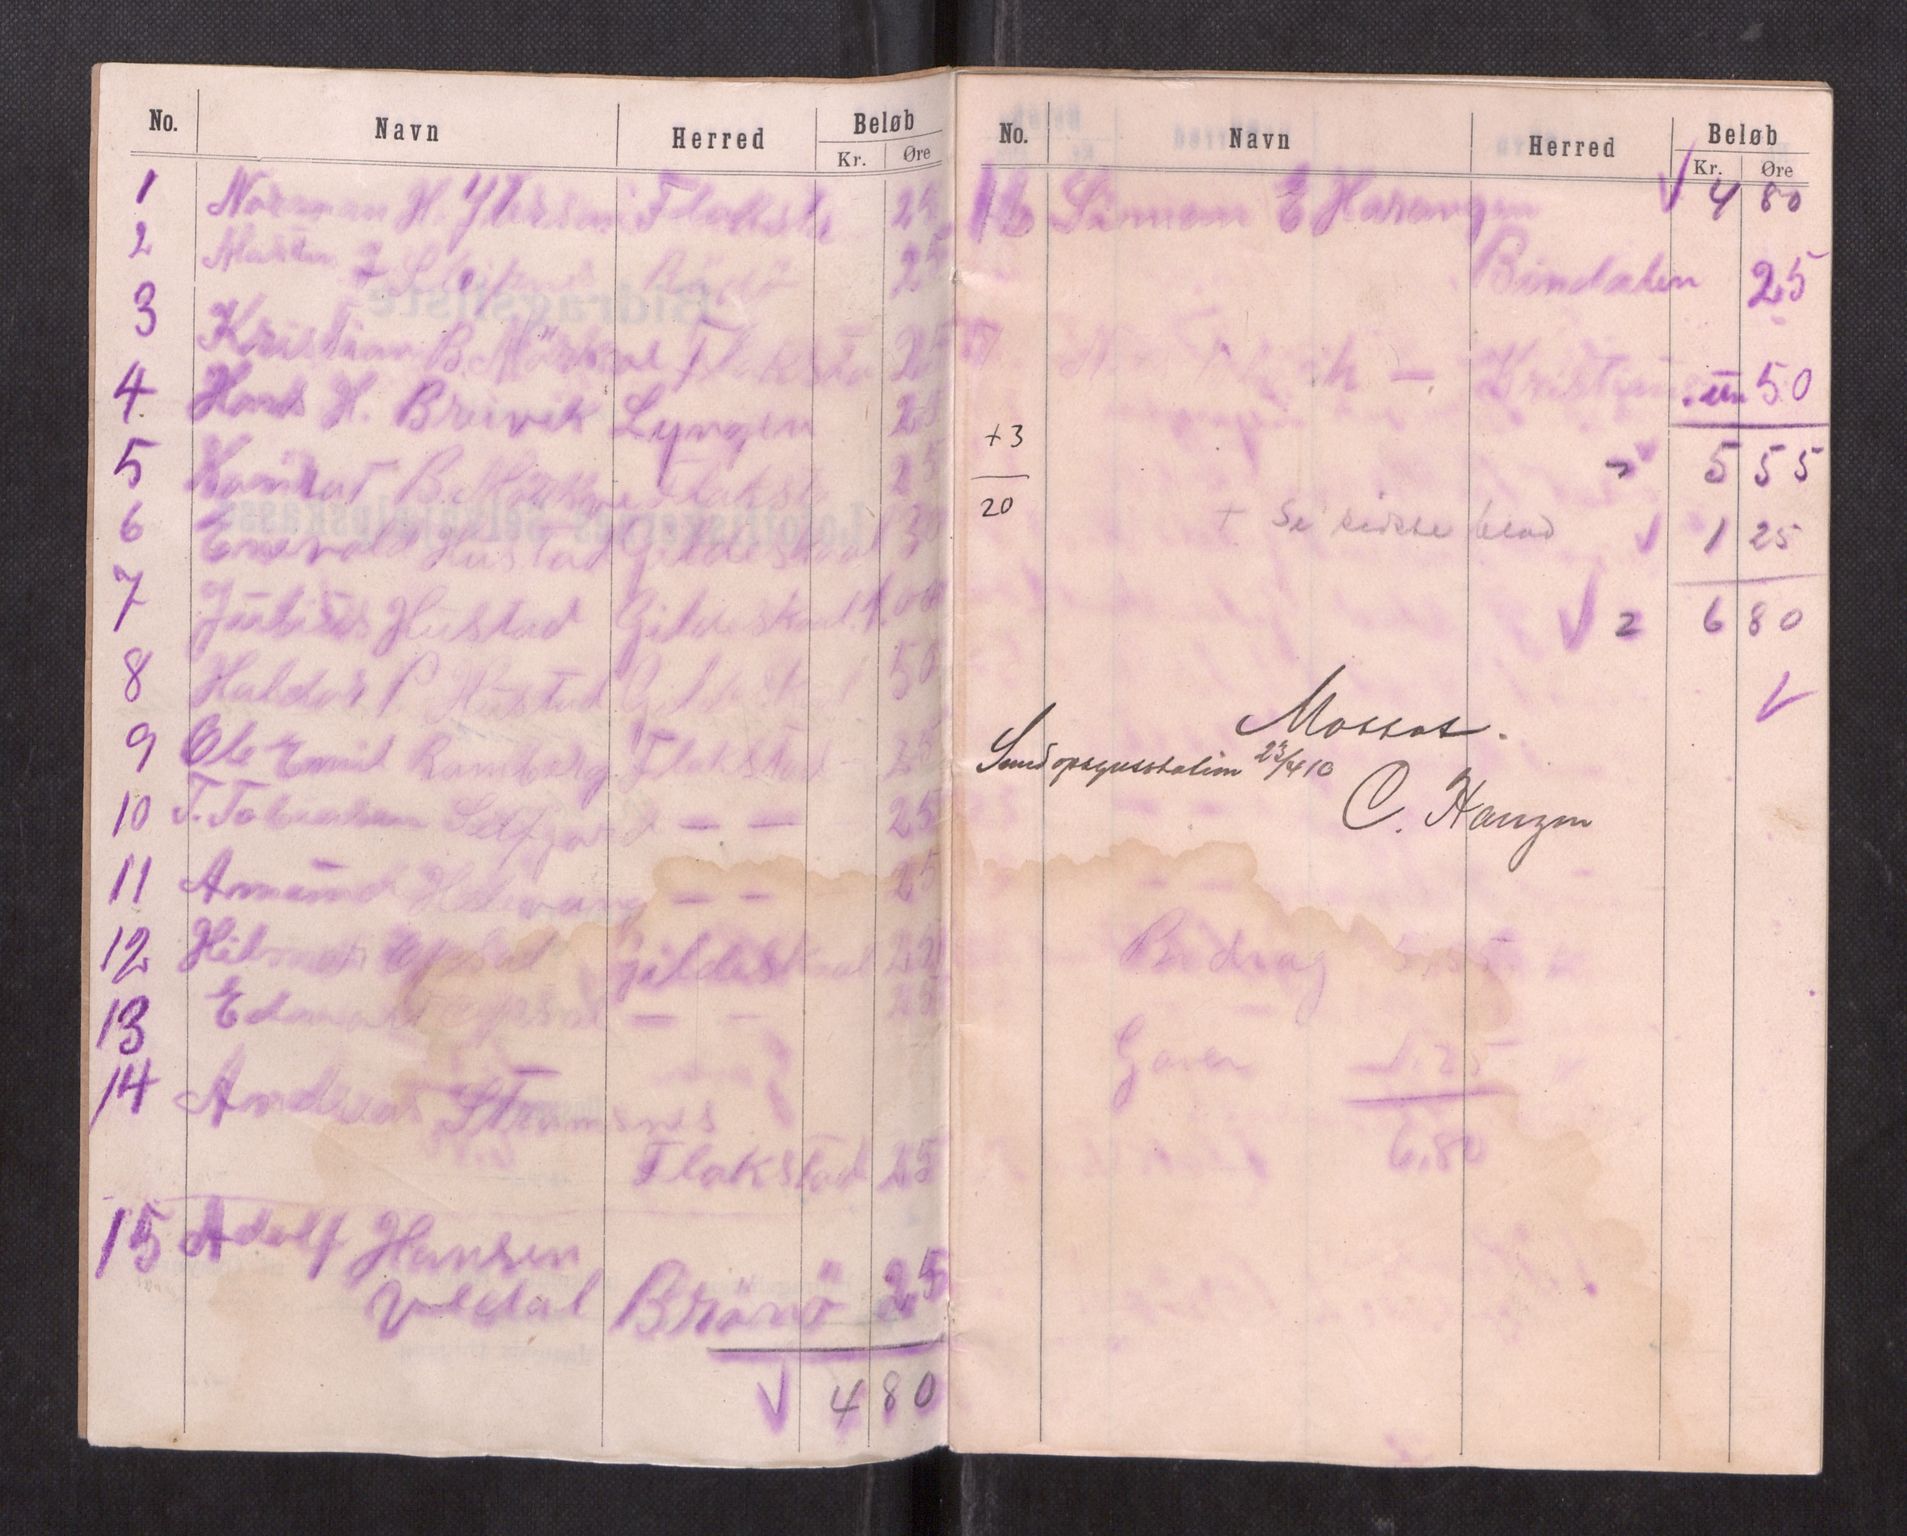 No. Navn Herred Beløb
Kr. Øre
1 Norman H. Flakstad 25
2 Martin J Rödö 25
3 Kristian B. Mörkve Flakstad 25
4 Hans H. Breivik Lyngen 25
5 Konrad B. Mörkve Flakstad 25
6 Enevald Hustad Gildeskaal 30
7 Julius Hustad Gildeskaal 1.00
8 Haldor P Hustad Gildeskaal 50
9 Ole Emil Ramberg Flakstad 25
10 T. Tobiassen Selfjord — — 25
11 Amund — — 25
12 Hilmar Gildeskaal 25
13 Edvard — — 25
14 Andreas Strömsnes
Flakstad 25
15 Adolf Hansen
Veldal Brönö 25
4 80
No. Navn Herred Beløb
Kr. Øre
16 Simon E Harangen 4 80
Bindalen 25
17 — Kristiansun 50
+3
5 55
20
+ Se sidste blad 1 25
2 6 80
Mottat.
Sundopsynsstation 23/4 10
C. Hanzen
Bidrag 5,55
Gaver 1.25
6,80